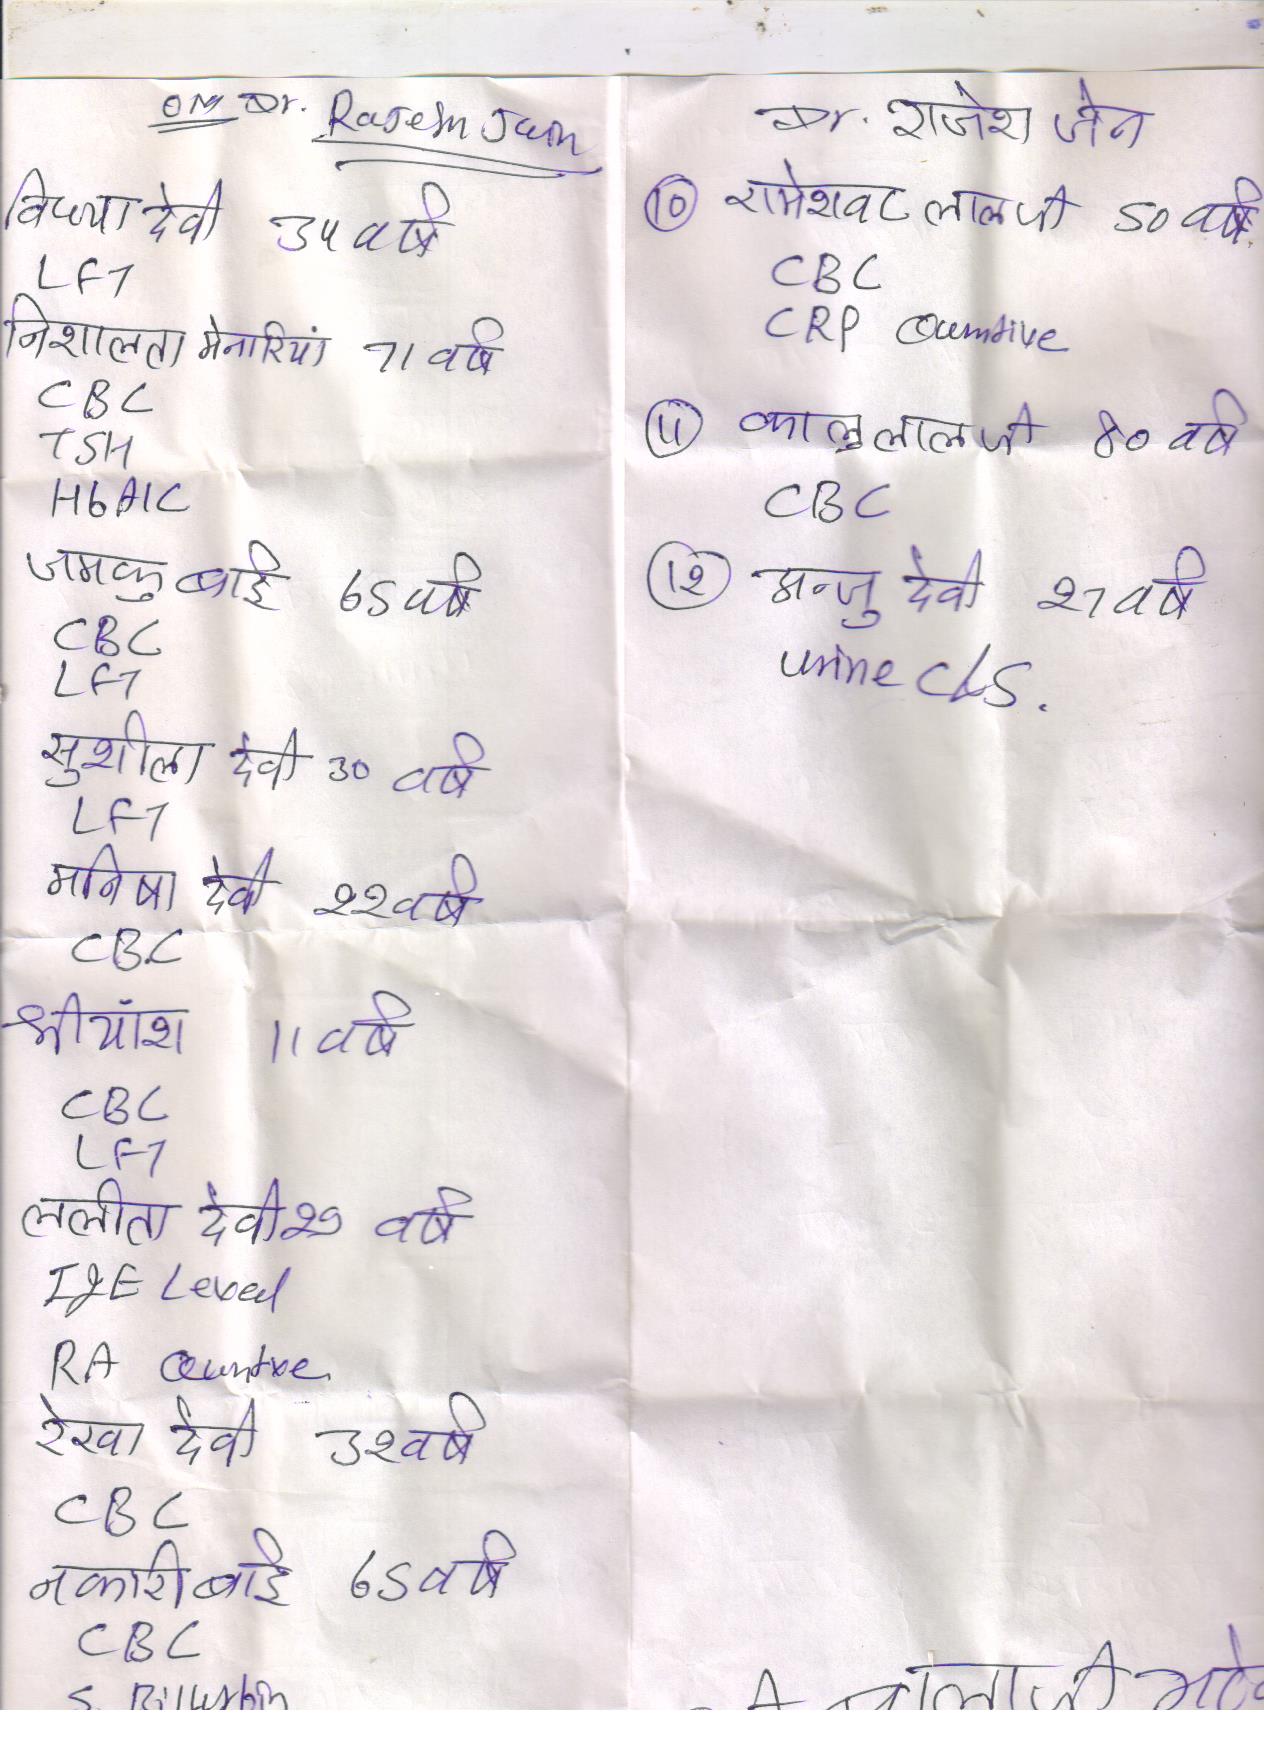 OM Dr. Rajesh Jain
विध्या देवी 34 वर्ष
LFT
निशालता मेनारियां 71 वर्ष
CBC
TSH
HbA1C
जमकु बाई 65 वर्ष
CBC
LFT
सुशीला देवी 30 वर्ष
LFT
मनिषा देवी 22 वर्ष
CBC
श्रीयांश 11 वर्ष
CBC
LFT
ललीता देवी 29 वर्ष
IgE Level
RA
रेखा देवी 32 वर्ष
CBC
नकारी बाई 65 वर्ष
CBC
S. Billurbin
Dr. राजेश जैन
10 रामेशवर लाल जी 50 वर्ष
CBC
CRP
11 कालुलाल जी 80 वर्ष
CBC
12 मन्जु देवी 27 वर्ष
urine C/S.